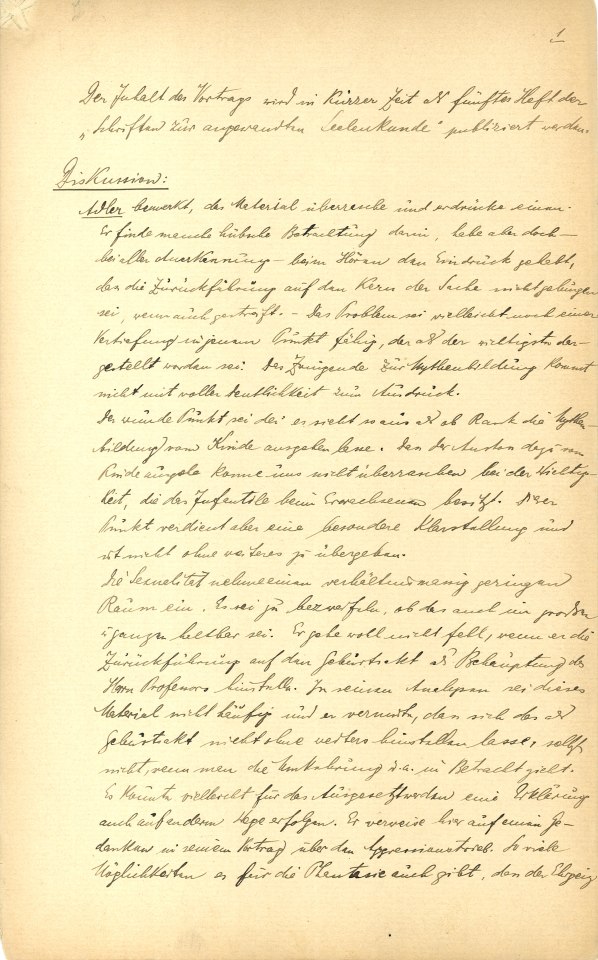 1
Der Inhalt des Vortrags wird in kurzer Zeit als fünftes Heft der
„Schriften zur angewandten Seelenkunde“ publiziert werden.
Diskussion:
Adler bemerkt, das Material überrasche und erdrücke einen.
Er finde manche hübsche Betrachtung darin, habe aber doch –
bei aller Anerkennung – beim Hören den Eindruck gehabt,
dass die Zurückführung auf den Kern der Sache nicht gelungen
sei, wenn auch gestreift. – Das Problem sei vielleicht noch einer
Vertiefung in jenem Punkt fähig, der als der wichtigste dar-
gestellt worden sei. Das Zwingende zur Mythenbildung kommt
nicht mit voller Deutlichkeit zum Ausdruck.
Der wunde Punkt sei der es sieht so aus als ob Rank die Mythen-
bildung vom Kinde ausgehen lasse. Dass der Anstoss dazu vom
Kinde ausgehe könne uns nicht überraschen bei der Wichtig-
keit, die das Infantile beim Erwachsenen besitzt. Dieser
Punkt verdient aber eine besondere Klarstellung und
ist nicht ohne weiteres zu übergehen.
Die Sexualität nehme einen verhältnismässig geringen
Raum ein. Es sei zu bezweifeln, ob das auch im grossen
u ganzen haltbar sei. Er gehe wohl nicht fehl, wenn er die
Zurückführung auf den Geburtsakt als Behauptung des
Herrn Professors hinstelle. In seinen Analysen sei dieses
Material nicht häufig und er vermute, dass sich das als
Geburtsakt nicht ohne weiters hinstellen lasse, selbst
nicht, wenn man die Umkehrung u.a. in Betracht zieht.
Es könnte vielleicht für das Ausgesetztwerden eine Erklärung
auch auf anderm Wege erfolgen. Er verweise hier auf einen Ge-
danken in seinem Vortrag über den Aggressionstrieb. So viele
Möglichkeiten es für die Phantasie auch gibt, dass der Ehrgeiz